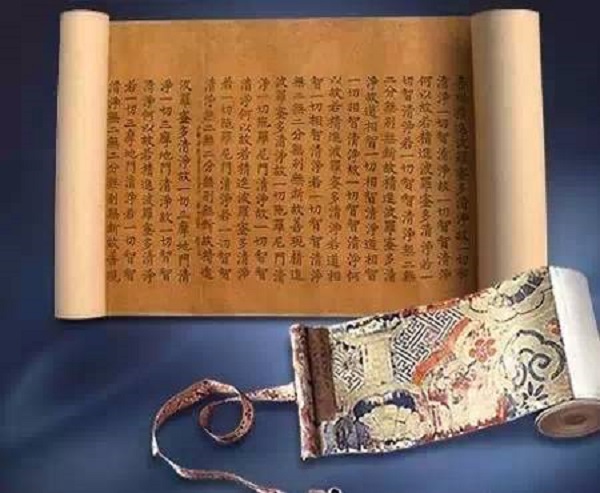 波羅蜜多清淨故一切智
清淨一切智清淨故一切智智清淨
何以故若精進波羅蜜多清淨若一
切智清淨若一切智智清淨無二無
二分無別無斷故精進波羅蜜多清
淨故道相智一切相智清淨道相智
一切相智清淨故一切智智清淨何
以故若精進波羅蜜多清淨若道相
智一切相智清淨若一切智智清淨
無二無二分無別無斷故善現精進
波羅蜜多清淨故一切陀羅尼門清
淨一切陀羅尼門清淨故一切智智
清淨何以故若精進波羅蜜多清淨
若一切陀羅尼門清淨若一切智智
清淨無二無二分無別無斷故精進
波羅蜜多清淨故一切三摩地門清
淨一切三摩地門清淨故一切智智
清淨何以故若精進波羅蜜多清淨
若一切三摩地門清淨若一切智智
清淨無二無二分無別無斷故善現